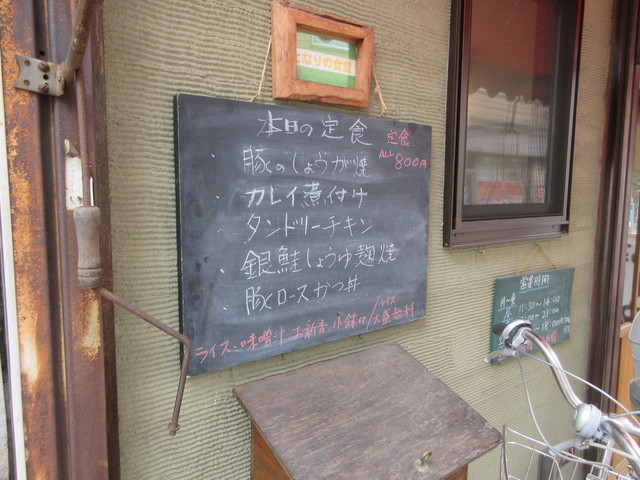 となりの食堂
本日の定食
定食
ALL 800円
・豚のしょうが焼
・カレイ煮付け
・タンドリーチキン
・銀鮭しょうゆ麹焼
・豚ロースかつ丼
ライス、味噌汁 お新香 小鉢付/ライス大盛無料
営業時間
11:30~14:00
~21:00
~18:00